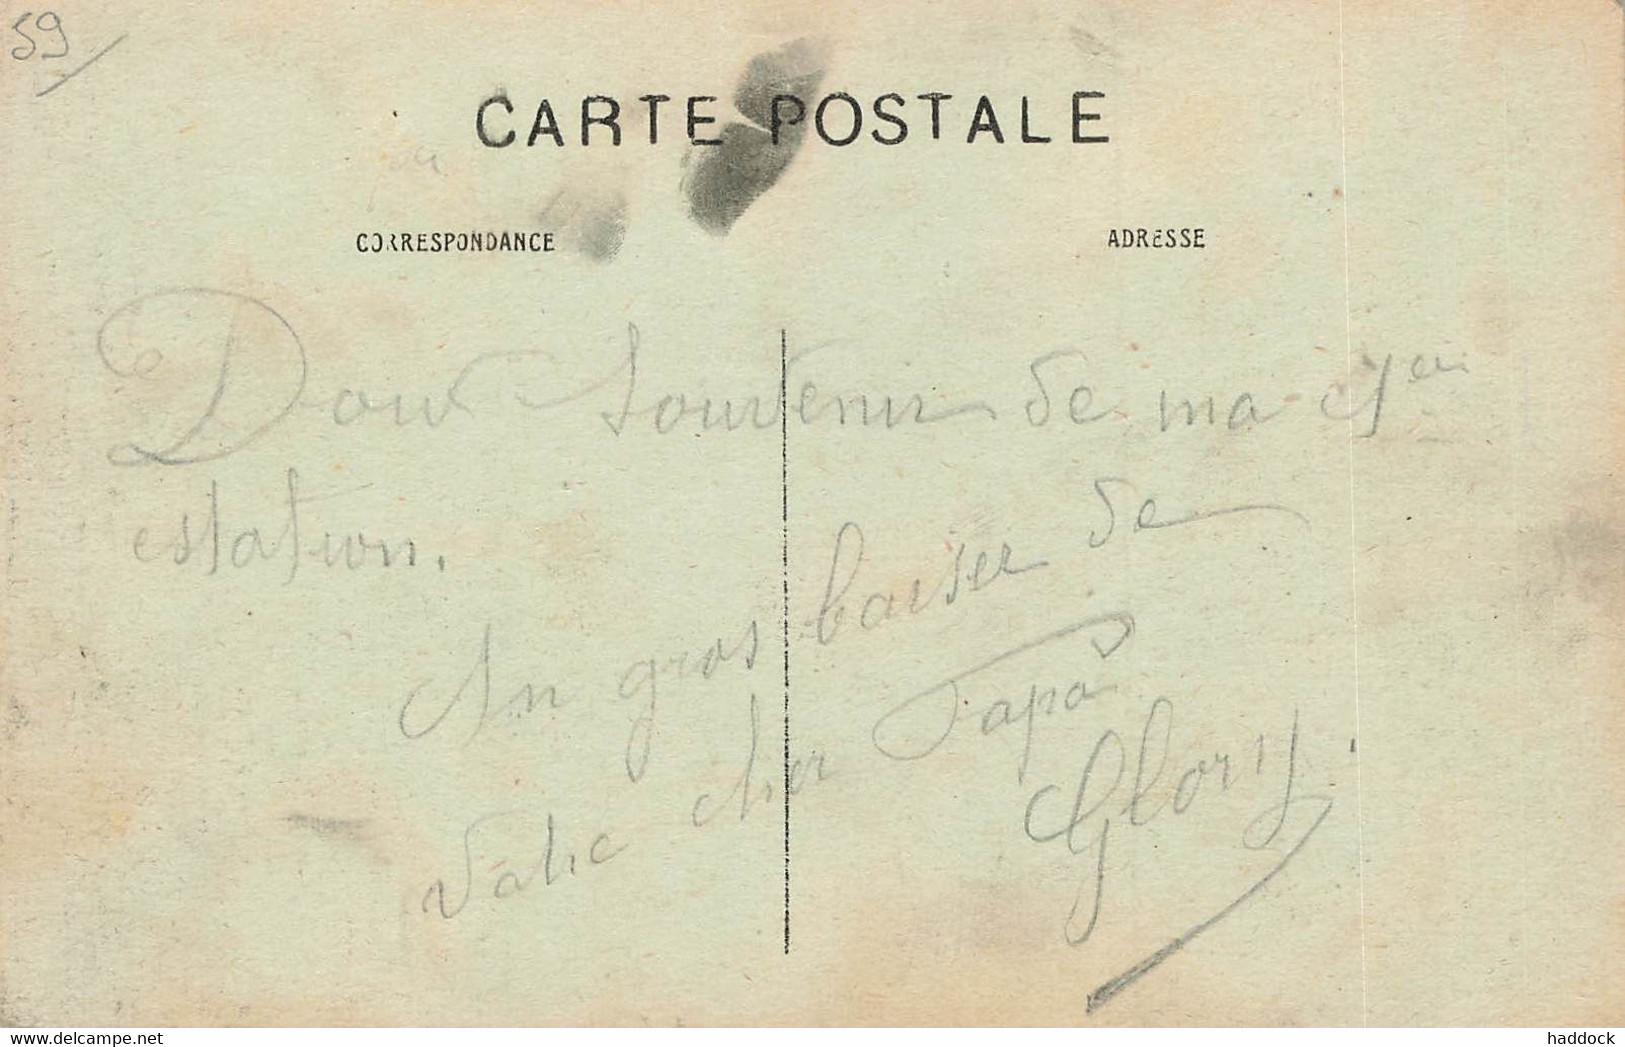 59
CARTE POSTALE
CORRESPONDANCE
ADRESSE
Doux Souvenir de ma
estation.
un gros baiser de
Votre cher Papa
Glory
www.delcampe.net
haddock